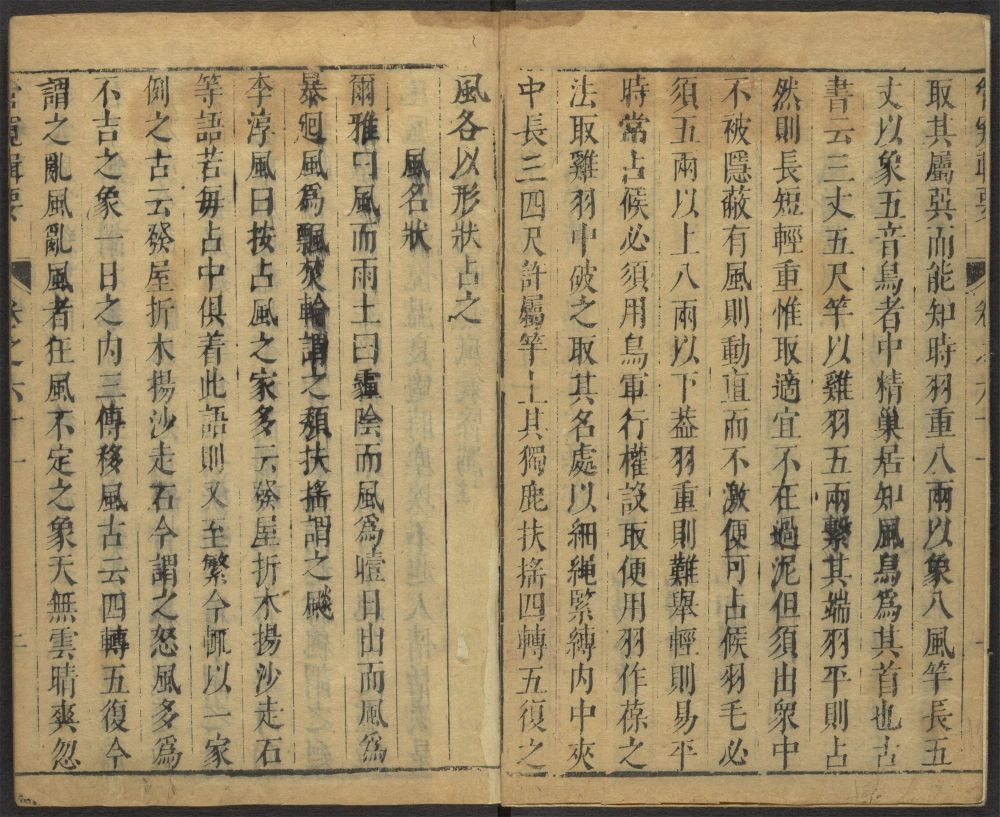 取其屬巽而能知時羽重八兩以象八風竿長五
丈以象五音烏者中精巢居知風烏為其首也古
書云三丈五尺竿以雞羽五兩繫其端羽平則占
然則長短輕重惟取適宜不在過泥但須出衆中
不被隱蔽有風則動直而不激便可占候羽毛必
須五兩以上八兩以下葢羽重則難舉輕則易平
時常占候必須用烏軍行權設取便用羽作葆之
法取雞羽中破之取其名處以細繩緊縛內中夾
中長三四尺許屬竿上其獨鹿扶搖四轉五復之
風各以形狀占之
風名狀
爾雅曰風而雨土曰霾陰而風為曀日出而風為
暴廻風為飄焚輪謂之頽扶搖謂之飇
李淳風曰按占風之家多云發屋折木揚沙走石
等語若毎占中俱着此語則又至繁今輒以一家
例之古云發屋折木揚沙走石今謂之怒風多為
不吉之象一日之內三傳移風古云四轉五復今
謂之亂風亂風者狂風不定之象天無雲晴爽忽
卷之六十一